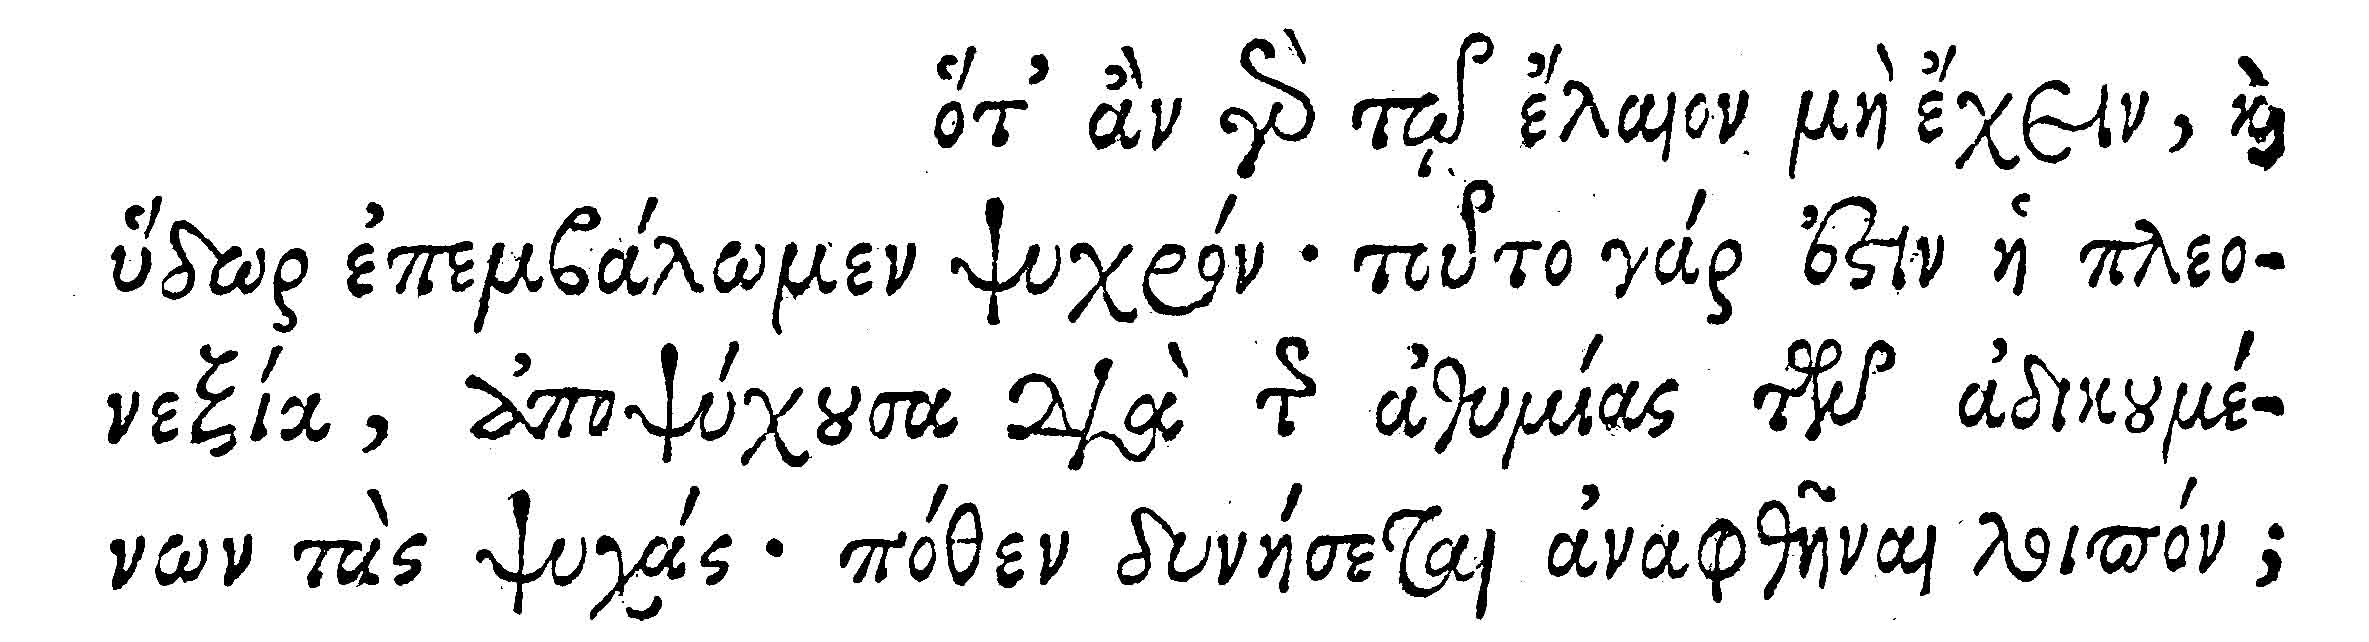 ὅτ’ ἂν γὰρ τῷ ἔλαιον μὴ ἔχειν, καὶ
ὕδωρ ἐπεμβάλωμεν ψυχρόν· τοῦτο γάρ ἐστιν ἡ πλεο-
νεξία, ἀποψύχουσα διὰ τῆς ἀθυμίας τῶν ἀδικουμέ-
νων τὰς ψυχάς· πόθεν δυνήσεται ἀναφθῆναι λοιπόν;